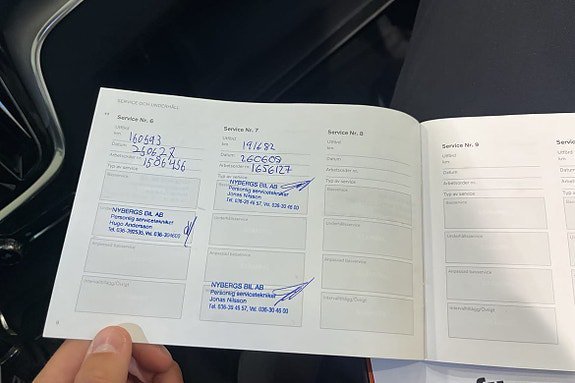 SERVICE OCH UNDERHÅLL
Service Nr. 6
Utförd
km
160593
Datum
Arbetsorder nr.
1586456
Typ av service
Basservice
Underhållsservice
NYBERGS BIL AB
Personlig servicetekniker
Hugo Andersson
Anpassad basservice
Intervalltillägg/Övrigt
Service Nr. 7
Utförd
km
191682
Datum
260609
Arbetsorder nr.
1656127
Typ av service
NYBERGS BIL AB
Personlig servicetekniker
Jonas Nilsson
Tel. 036-39 45 57, Vxl. 036-30 46 00
Underhållsservice
Anpassad basservice
NYBERGS BIL AB
Personlig servicetekniker
Jonas Nilsson
Tel. 036-39 45 57, Vxl. 036-30 46 00
Service Nr. 8
Utförd
km
Datum
Arbetsorder nr.
Typ av service
Basservice
Underhållsservice
Anpassad basservice
Intervalltillägg/Övrigt
Service Nr. 9
Utförd
km
Datum
Arbetsorder nr.
Typ av service
Basservice
Underhållsservice
Anpassad basservice
Intervalltillägg/Övrigt